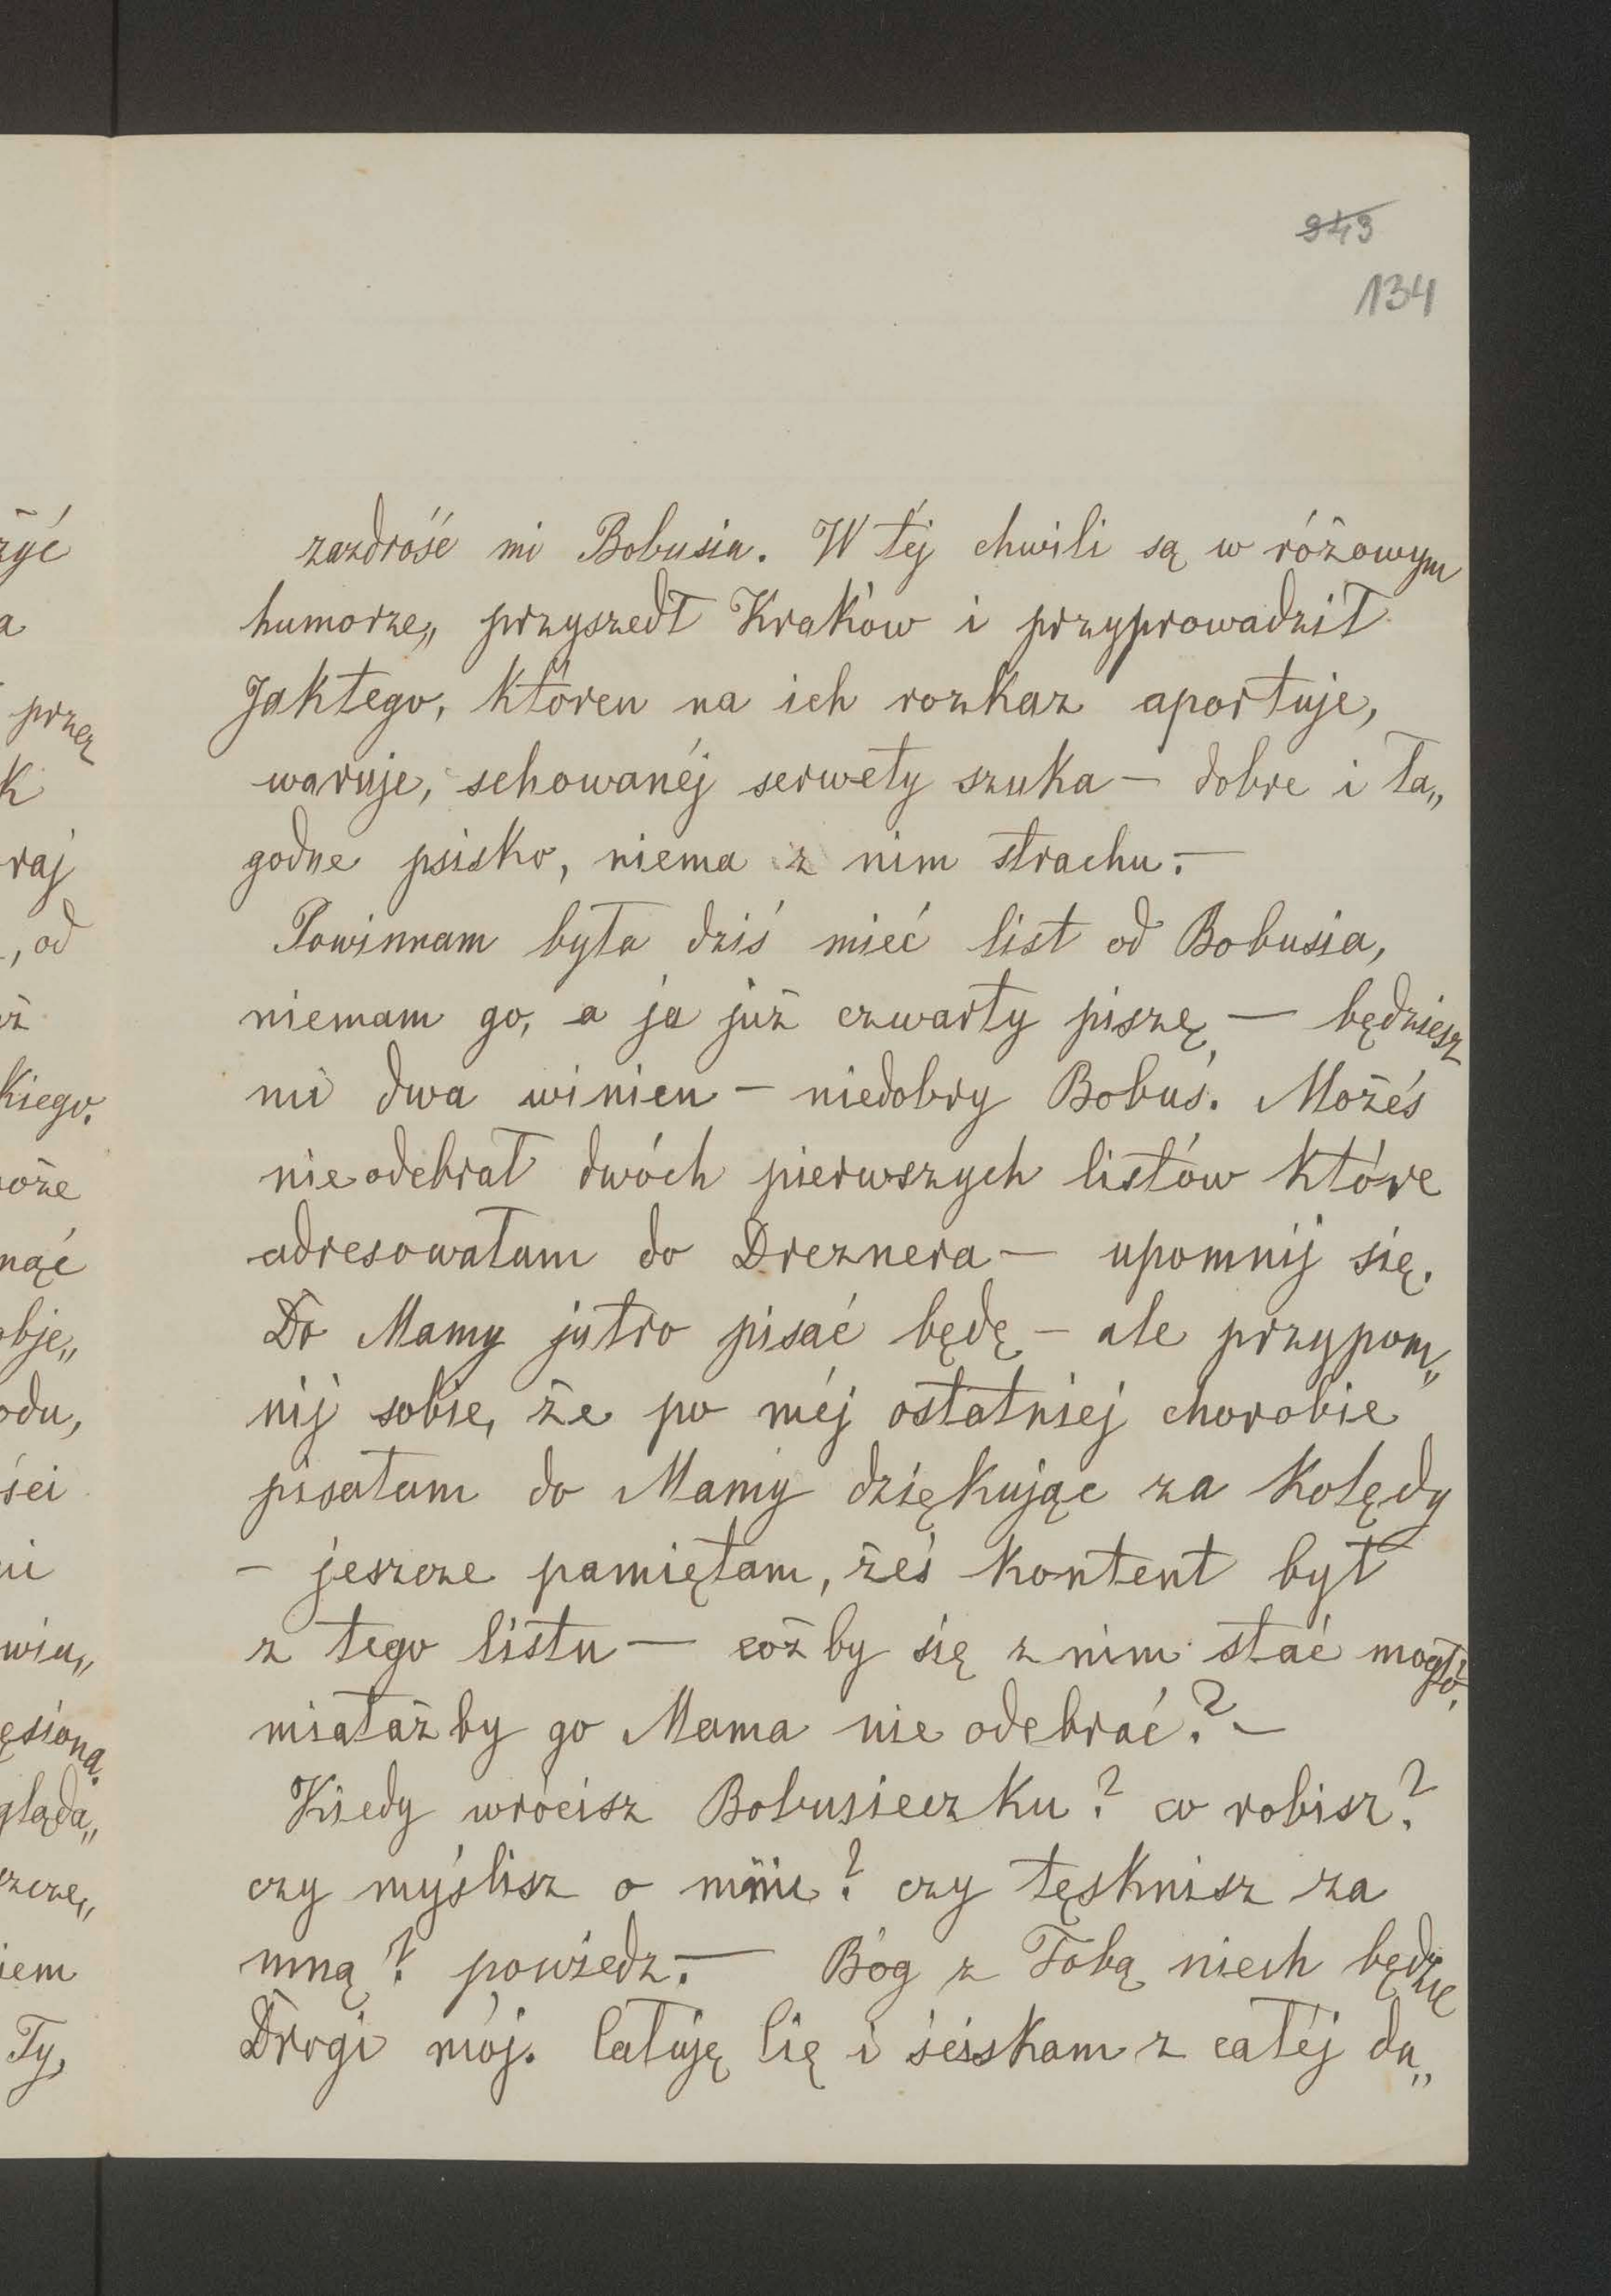 943
134
zazdrość mi Bobusia. W téj chwili są w różowym
humorze„ przyszedł Kraków i przyprowadził
Jaktego, któren na ich rozkaz aportuje,
waruje, schowanéj serwety szuka — dobre i ła„
godne psisko, niema z nim strachu. —
Powinnam była dziś mieć list od Bobusia,
niemam go, a ja już czwarty piszę, — będziesz
mi dwa winien — niedobry Bobuś. Możéś
nie odebrał dwóch pierwszych listów które
adresowałam do Dreznera — upomnij się.
Do Mamy jutro pisać będę — ale przypom„
nij sobie, że po méj ostatniej chorobie
pisałam do Mamy dziękując za kolędy
— jeszcze pamiętam, żeś kontent był
z tego listu — cożby się z nim stać mogło,
miałażby go Mama nie odebrać? —
Kiedy wrócisz Bobusieczku? co robisz?
czy myślisz o mnie? czy tęsknisz za
mną? powiedz. — Bóg z Tobą niech będzie
Drogi mój. Całuję Cię i ściskam z całéj du„
żyć
a
przez
k
raj
, od
ż
kiego.
oże
nąć
bje„
odu,
ści
ni
win„
ęsiona.
gląda„
szczę„
iem
Ty,